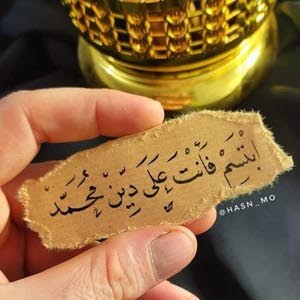 ابْتَسِمْ فَأَنْتَ عَلَى دِينِ مُحَمَّدْ
@HASN_MO